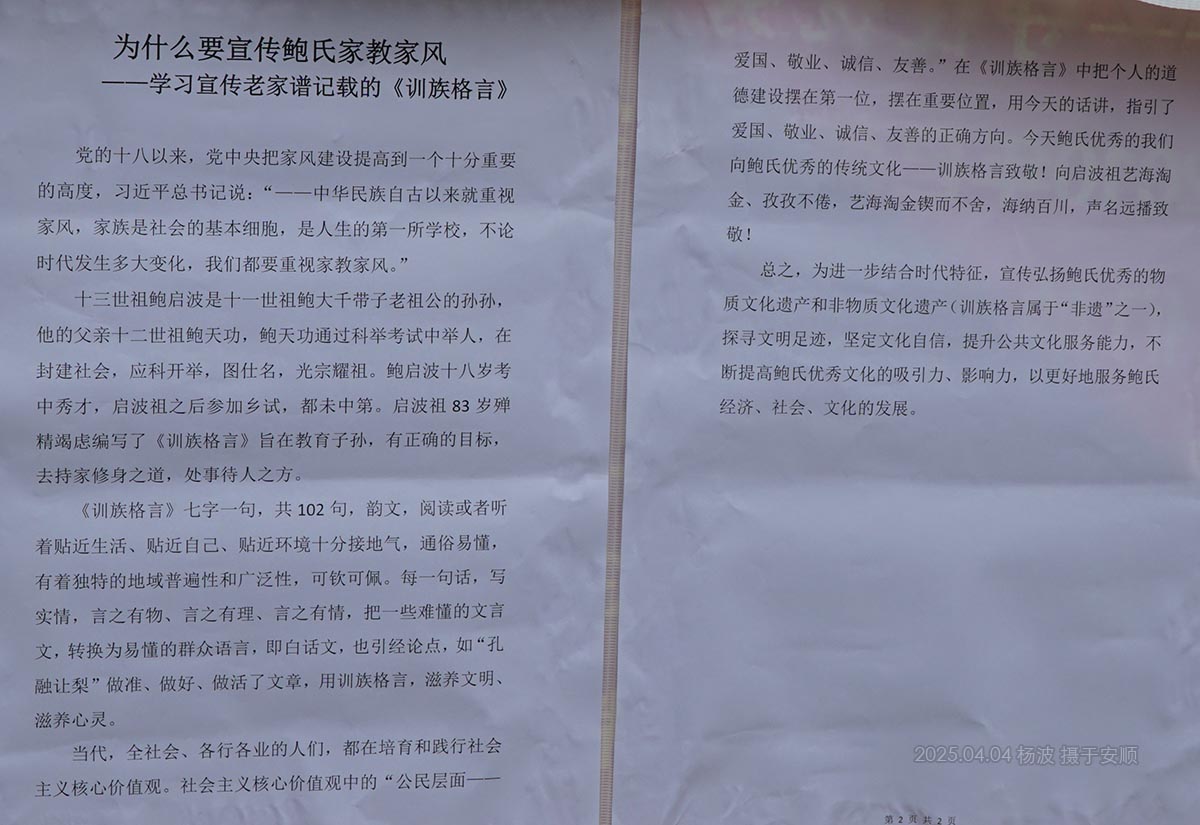 为什么要宣传鲍氏家教家风
——学习宣传老家谱记载的《训族格言》
党的十八以来，党中央把家风建设提高到一个十分重要
的高度，习近平总书记说：“——中华民族自古以来就重视
家风，家族是社会的基本细胞，是人生的第一所学校，不论
时代发生多大变化，我们都要重视家教家风。”
十三世祖鲍启波是十一世祖鲍大千带子老祖公的孙孙，
他的父亲十二世祖鲍天功，鲍天功通过科举考试中举人，在
封建社会，应科开举，图仕名，光宗耀祖。鲍启波十八岁考
中秀才，启波祖之后参加乡试，都未中第。启波祖 83 岁殚
精竭虑编写了《训族格言》旨在教育子孙，有正确的目标，
去持家修身之道，处事待人之方。
《训族格言》七字一句，共 102 句，韵文，阅读或者听
着贴近生活、贴近自己、贴近环境十分接地气，通俗易懂，
有着独特的地域普遍性和广泛性，可钦可佩。每一句话，写
实情，言之有物、言之有理、言之有情，把一些难懂的文言
文，转换为易懂的群众语言，即白话文，也引经论点，如“孔
融让梨”做准、做好、做活了文章，用训族格言，滋养文明、
滋养心灵。
当代，全社会、各行各业的人们，都在培育和践行社会
主义核心价值观。社会主义核心价值观中的“公民层面——
爱国、敬业、诚信、友善。”在《训族格言》中把个人的道
德建设摆在第一位，摆在重要位置，用今天的话讲，指引了
爱国、敬业、诚信、友善的正确方向。今天鲍氏优秀的我们
向鲍氏优秀的传统文化——训族格言致敬！向启波祖艺海淘
金、孜孜不倦，艺海淘金锲而不舍，海纳百川，声名远播致
敬！
总之，为进一步结合时代特征，宣传弘扬鲍氏优秀的物
质文化遗产和非物质文化遗产（训族格言属于“非遗”之一），
探寻文明足迹，坚定文化自信，提升公共文化服务能力，不
断提高鲍氏优秀文化的吸引力、影响力，以更好地服务鲍氏
经济、社会、文化的发展。
2025.04.04 杨波 摄于安顺
第 2 页 共 2 页